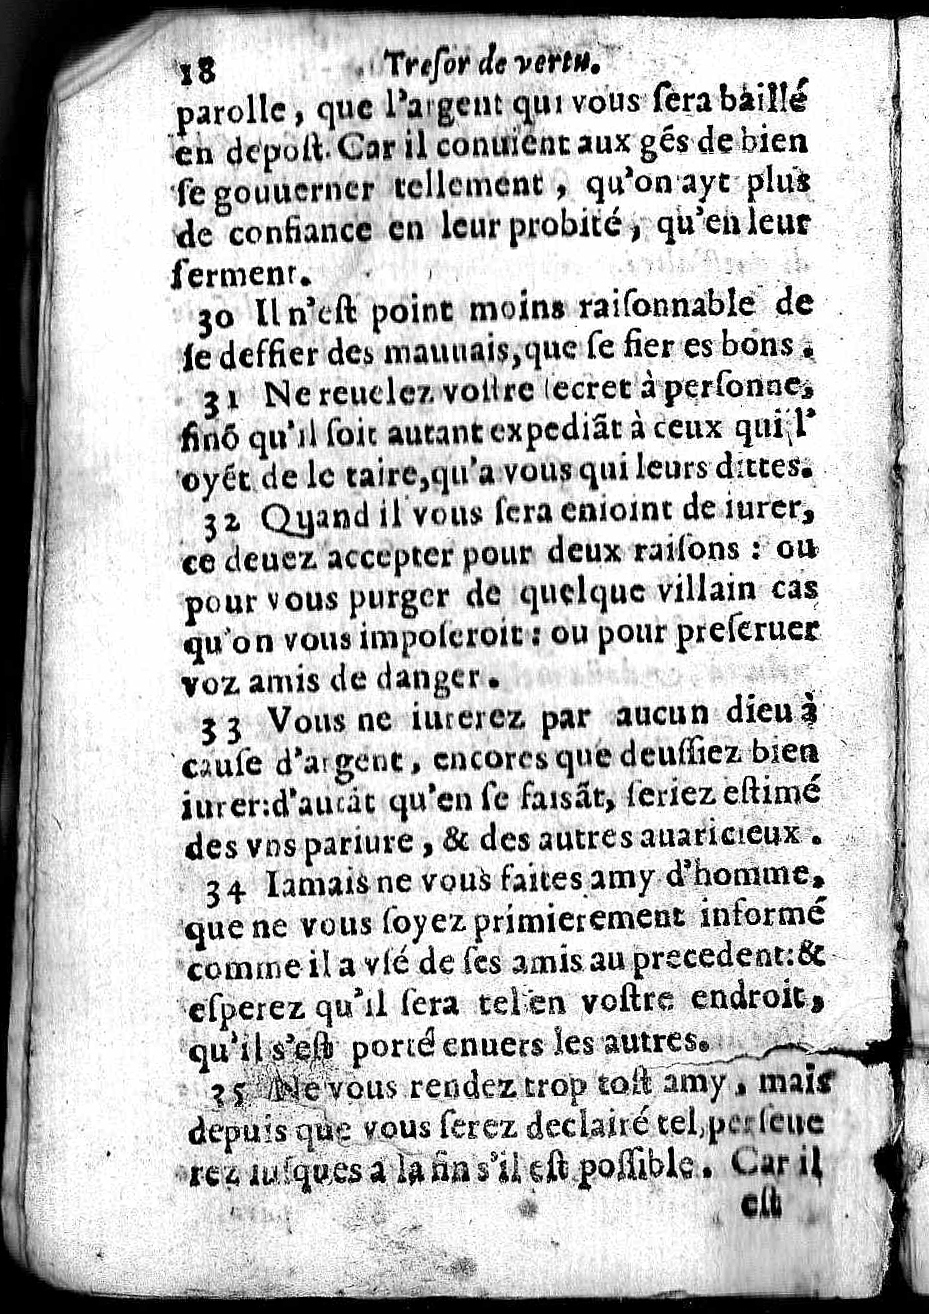 18 Treſor de vertu.
parolle, que l'argent qui vous ſera baillé
en depoſt. Car il conuient aux gẽs de bien
ſe gouuerner tellement, qu'on ayt plus
de confiance en leur probité, qu'en leur
ſerment.
30 Il n'eſt point moins raiſonnable de
ſe deffier des mauuais, que ſe fier es bons.
31 Ne reuelez voſtre ſecret à perſonne,
ſinõ qu'il ſoit autant expediãt à ceux qui l'
oyẽt de le taire, qu'a vous qui leurs dittes.
32 Quand il vous ſera enioint de iurer,
ce deuez accepter pour deux raiſons : ou
pour vous purger de quelque villain cas
qu'on vous impoſeroit : ou pour preſeruer
voz amis de danger.
33 Vous ne iurerez par aucun dieu à
cauſe d'argent, encores que deuſſiez bien
iurer: d'autãt qu'en ſe faiſãt, ſeriez eſtimé
des vns pariure, & des autres auaricieux.
34 Iamais ne vous faites amy d'homme,
que ne vous ſoyez primierement informé
comme il a vſé de ſes amis au precedent: &
eſperez qu'il ſera tel en voſtre endroit,
qu'il s'eſt porté enuers les autres.
35 Ne vous rendez trop toſt amy, mais
depuis que vous ſerez declairé tel, perſeue
rez iuſques a la fin s'il eſt poſſible. Car il
eſt